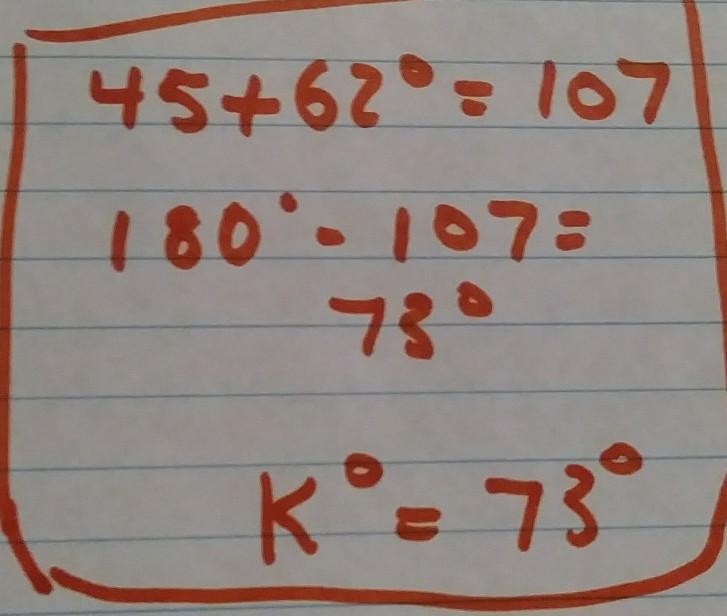 45+62°=107
180°-107=
73°
K°=73°